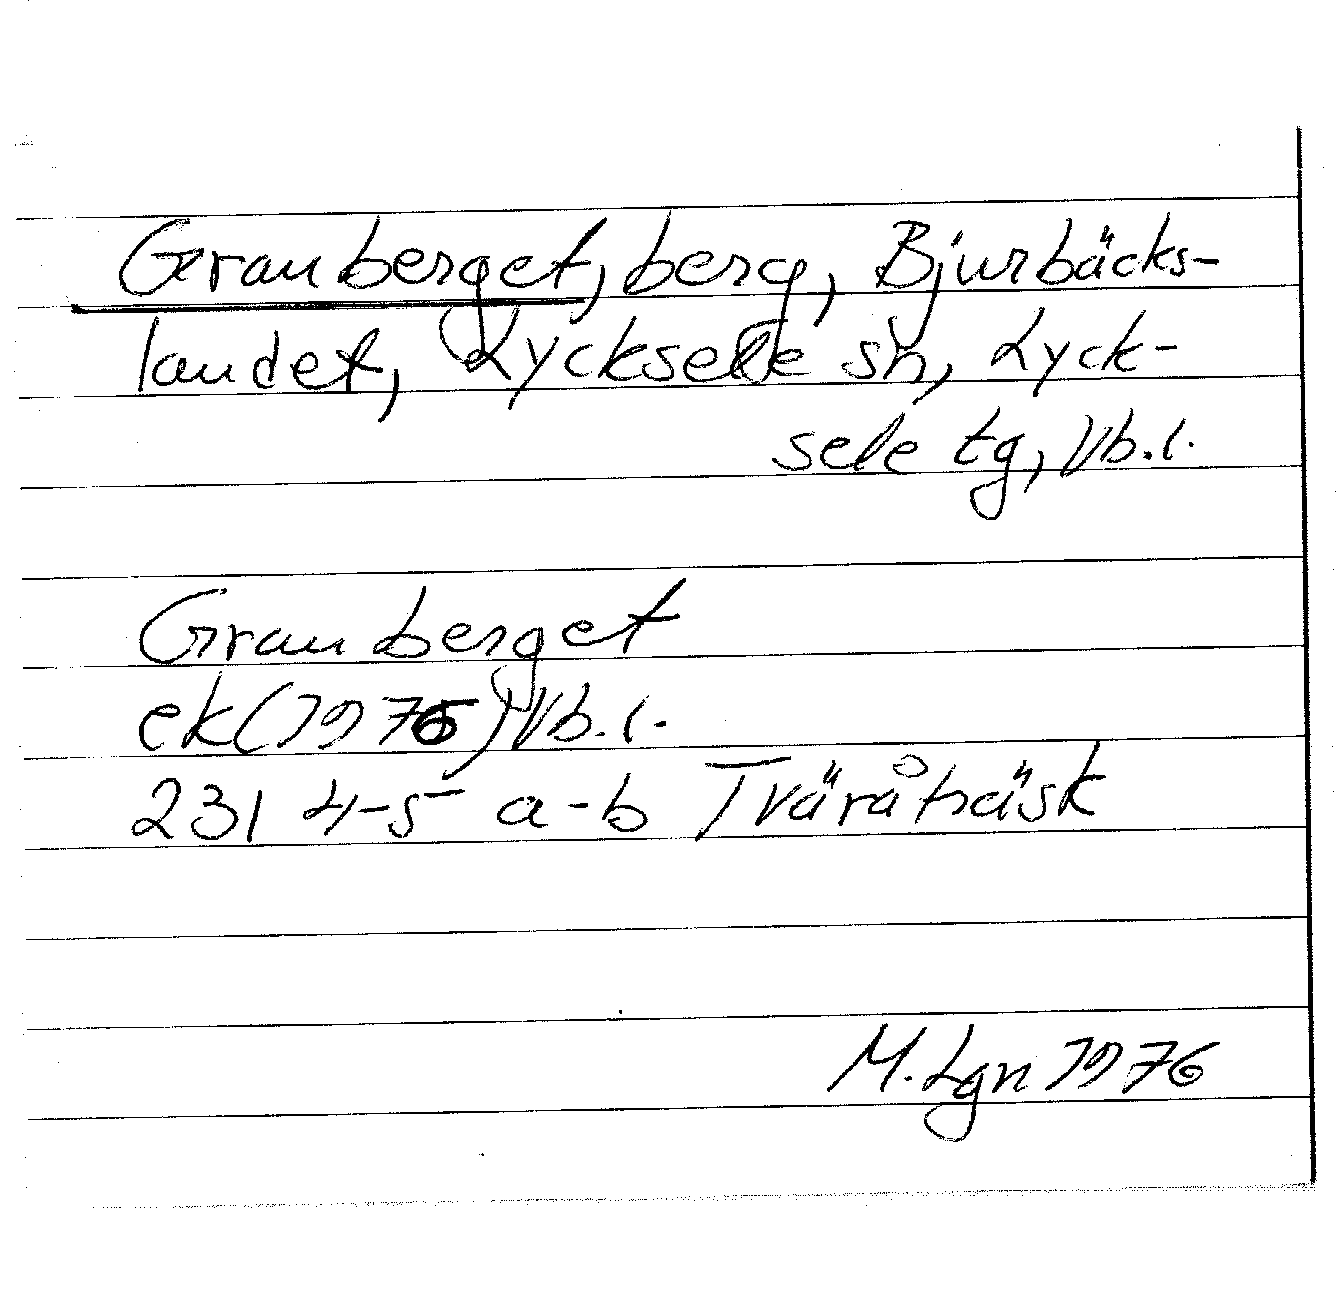 Granberget, berg, Bjurbäcks-
landet, Lycksele sn, Lyck-
sele tg, Vb.l.
Granberget
ek(1976) Vb.l.
231 4-5 a-b Tväråträsk
M. Lgn 1976